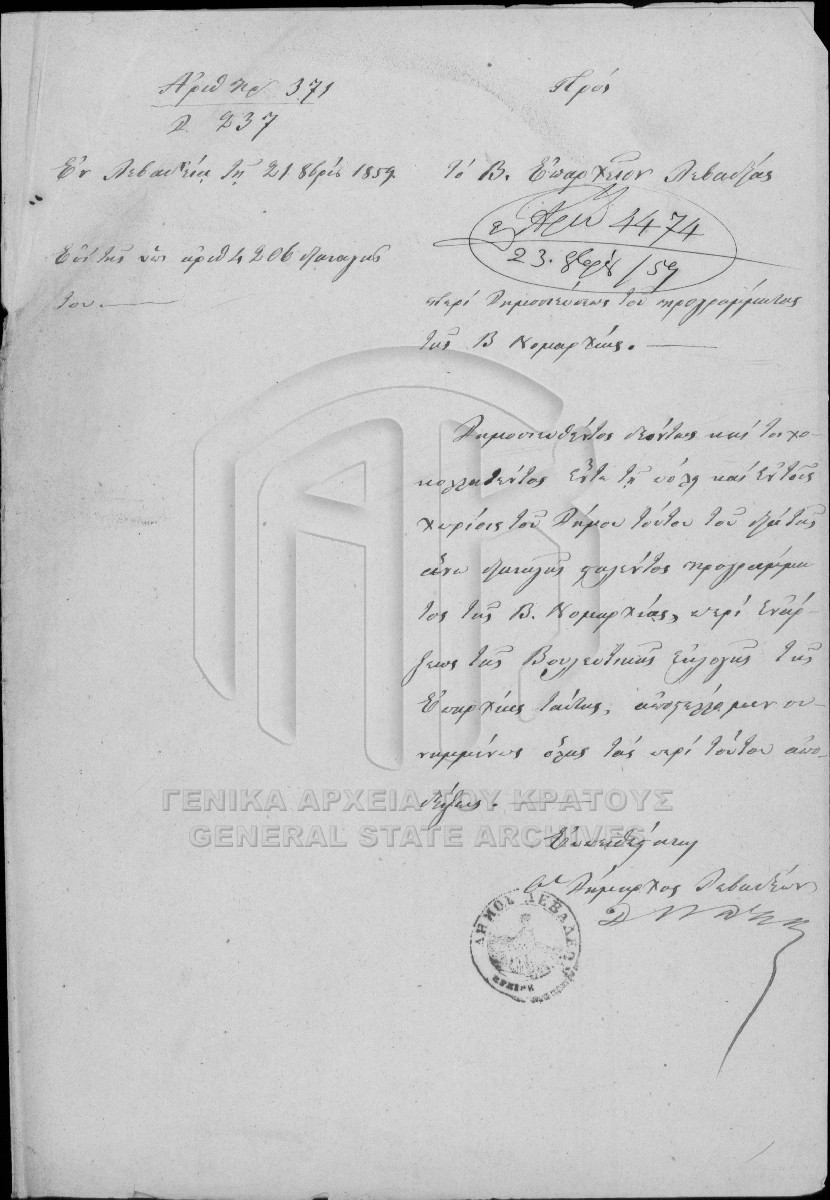 Ἀριθ πρ 371
Δ. 237
Ἐν Λεβαδείᾳ τῇ 21 8βρίς 1859.
Ἐπὶ τῆς ὑπ ἀριθ 4206 διαταγῆς
του.
Πρὸς
τὸ Β. Ἐπαρχεῖον Λεβαδείας
Ἀριθ 4474
23. 8βρίου /59
περὶ δημοσιεύσεως τοῦ προγράμματος
τῆς Β Νομαρχίας.
Δημοσιευθέντος δεόντως καὶ τοιχο-
κολληθέντος ἔντε τῇ πόλει καὶ ἐν τοῖς
χωρίοις τοῦ Δήμου τούτου τοῦ διὰ τῆς
ἄνω διαταγῆς σταλέντος προγράμμα
τος τῆς Β. Νομαρχίας, περὶ ἐνάρ-
ξεως τῆς Βουλευτικῆς ἐκλογῆς τῆς
Ἐπαρχίας ταύτης, ἀποστέλλομεν συ-
νημμένως ὅλας τὰς περὶ τούτου ἀπο-
δείξεις.
Εὐπειθέστατος
Ὁ Δήμαρχος Λεβαδέων
ΔΗΜΟΣ ΛΕΒΑΔΕΩΝ
ΓΕΝΙΚΑ ΑΡΧΕΙΑ ΤΟΥ ΚΡΑΤΟΥΣ
GENERAL STATE ARCHIVES